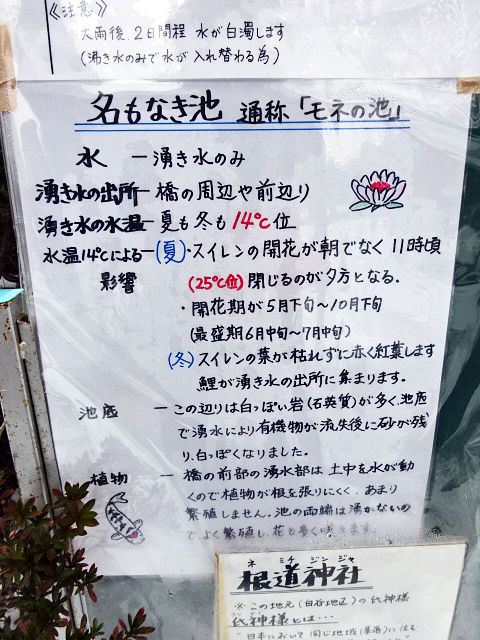 《注意》
大雨後、2日間程 水が白濁します
(湧き水のみで水が入れ替わる為)
名もなき池 通称「モネの池」
水 ー湧き水のみ
湧き水の出所ー橋の周辺や前辺り
湧き水の水温ー夏も冬も14℃位
水温14℃によるー(夏)・スイレンの開花が朝でなく11時頃
影響 (25℃位) 閉じるのが夕方となる。
・開花期が5月下旬〜10月下旬
(最盛期6月中旬〜7月中旬)
(冬)スイレンの葉が枯れずに赤く紅葉します
鯉が湧き水の出所に集まります。
池底 ーこの辺りは白っぽい岩(石英質)が多く、池底
で湧水により有機物が流失後に砂が残
り、白っぽくなりました。
植物 ー橋の前部の湧水部は土中を水が動
くので植物が根を張りにくく、あまり
繁殖しません。池の両端は湧かないの
でよく繁殖し、花も多く咲きます。
ネ ミチ ジンジャ
根道神社
※この地元(白谷地区)の氏神様
氏神様とは…
"日本において同じ地域(集落)に住む